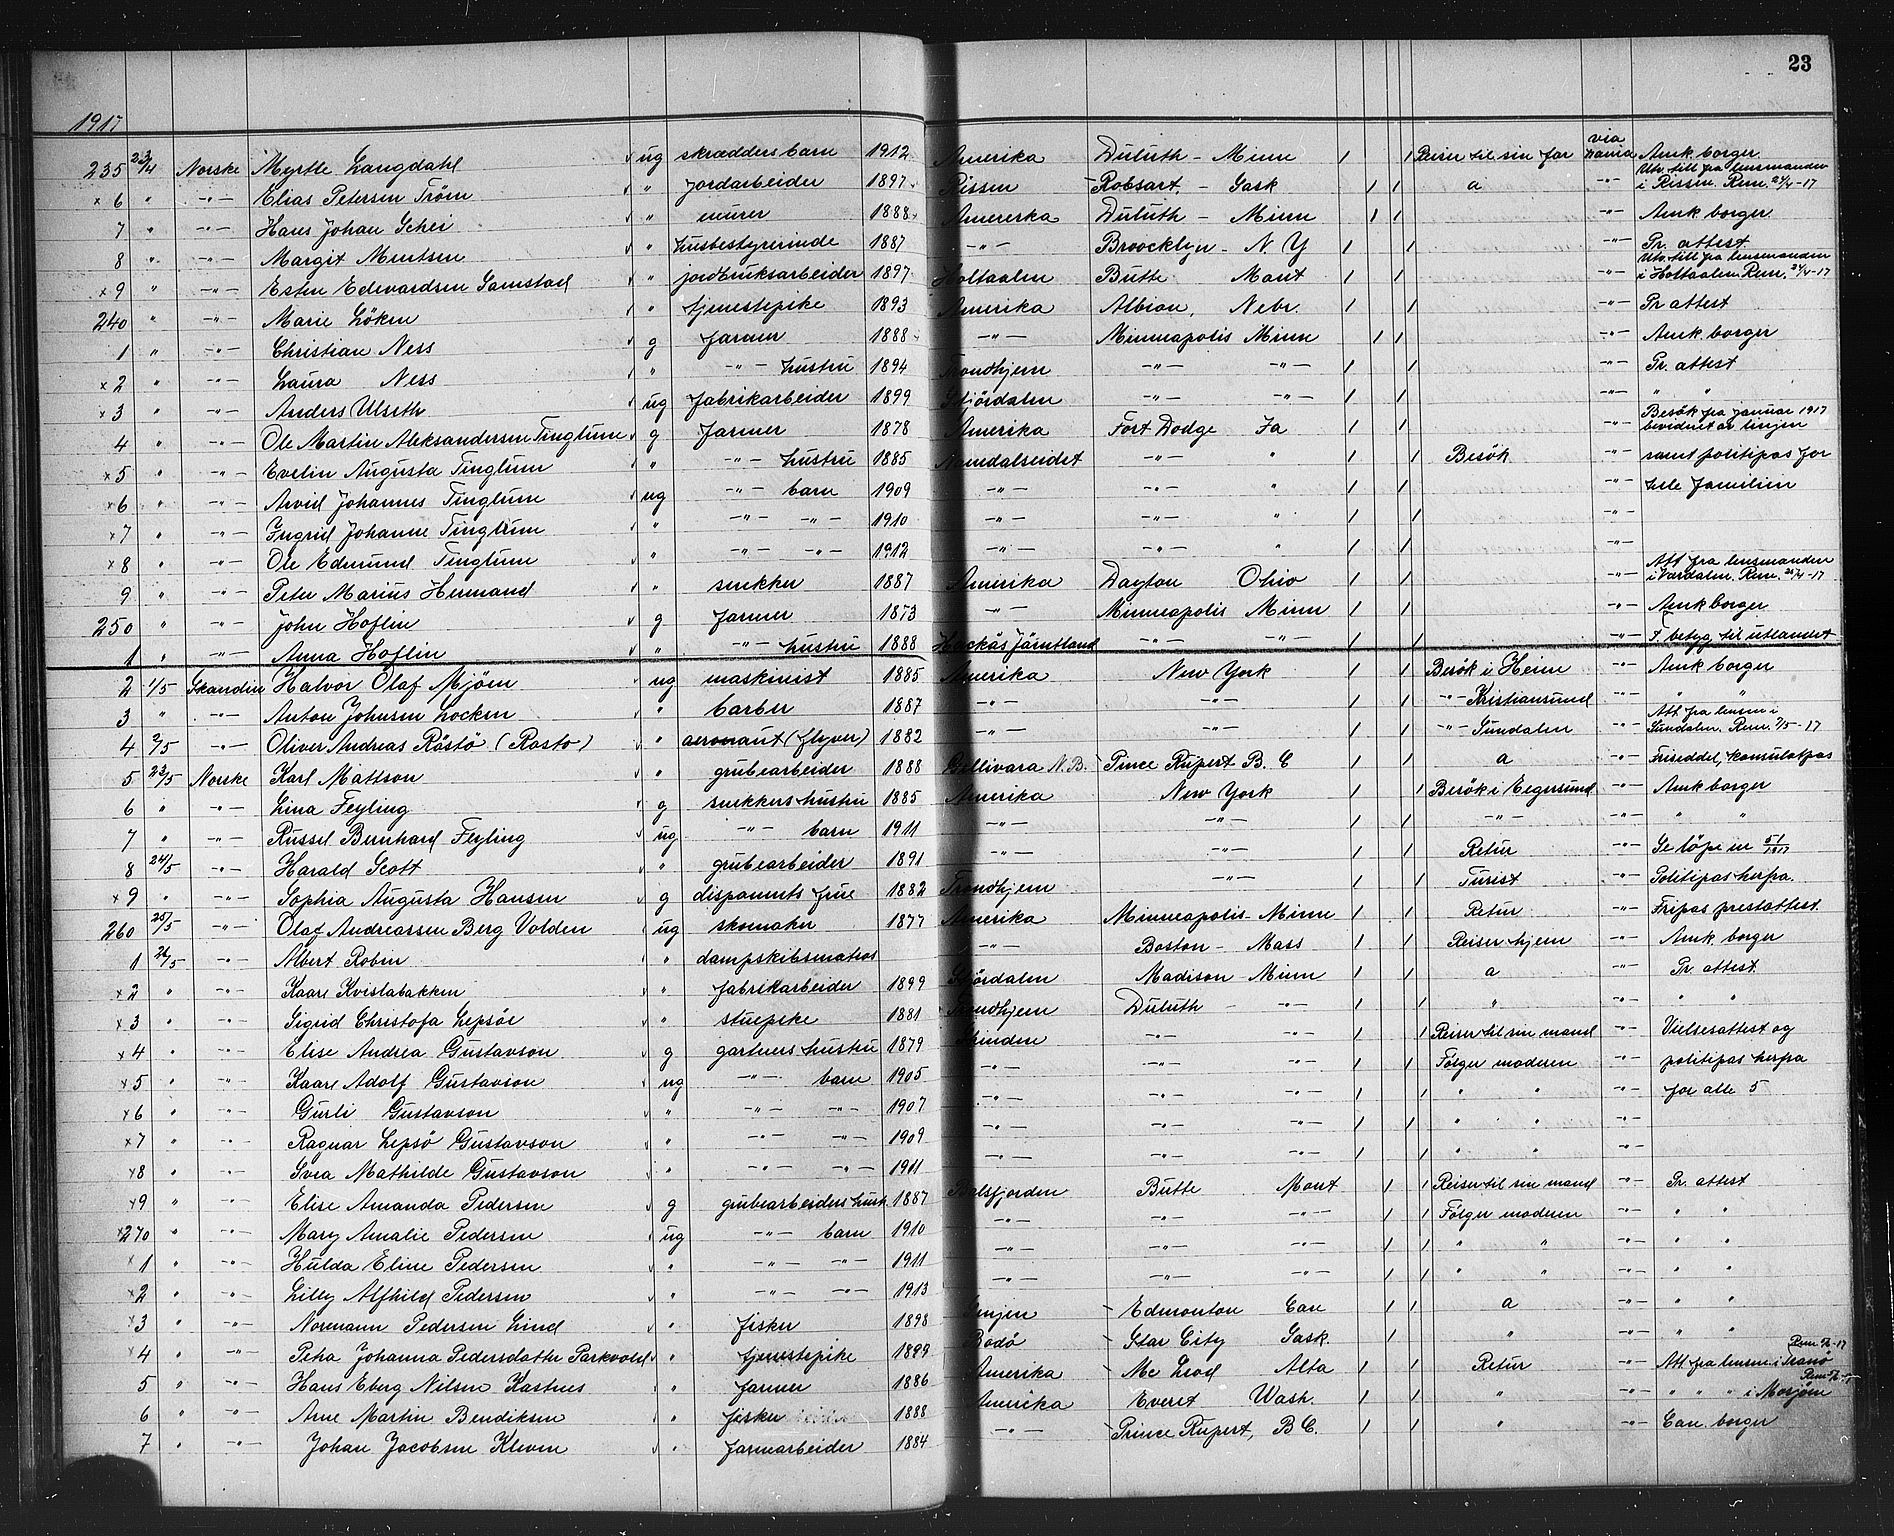 23
1917
235 23/4 Norske Myrtle Langdahl ug skrædders barn 1912 Amerika Duluth - Minn Reiser til sin far via Dania Amk. borger
x 6 " -"- Elias Petersen Tröen " jordarbeider 1897 Rissen Robsart - Sask a -"- Utv. till fra lensmanden i Rissen. Rem. 24/4-17
7 " -"- Hans Johan Schei " murer 1888 Amererka Duluth - Minn -"- Amk borger
8 " -"- Margit Mentsen " husbestyrerinde 1887 -"- Broocklyn - N. Y -"- Pr. attest
x 9 " -"- Esten Edevardsen Samstad " jordbruksarbeider 1897 Holtaalen Butte Mont -"- Utv. till fra lensmanden i Holtaalen Rem. 24/4-17
240 " -"- Marie Löken " tjenestepike 1893 Amerika Albion, Nebr. -"- Pr attest
1 " -"- Christian Ness g farmer 1888 -"- Minneapolis Minn -"- Amk borger
x 2 " -"- Laura Ness " -"- hustru 1894 Trondhjem -"- -"- -"- Pr. attest
x 3 " -"- Anders Ulseth ug fabrikarbeider 1899 Stjördalen -"- -"- -"- " "
4 " -"- Ole Martin Aleksandersen Tinglum g farmer 1878 Amerika Fort Dodge Ia -"- Besök fra Januar 1917 bevidnet av linjen
x 5 " -"- Evelin Augusta Tinglum " -"- hustru 1885 Namdalseidet -"- " Besök -"- samt politipas for
x 6 " -"- Arvid Johannes Tinglum ug -"- barn 1909 -"- -"- " -"- hele familien
x 7 " -"- Ingrid Johanne Tinglum " -"- -"- 1910 -"- -"- " -"-
x 8 " -"- Ole Edmund Tinglum " -"- -"- 1912 -"- -"- " -"-
9 " -"- Peter Marius Hermand " snekker 1887 Amerika Dayton Ohio -"- Att fra lensmanden i Værdalen. Rem. 25/4-17
250 " -"- John Hoflin g farmer 1873 -"- Minneapolis Minn -"- Amk borger
1 " -"- Anna Hoflin " -"- hustru 1888 Hackås Jämtland -"- -"- -"- F. betyg til utlandet
2 1/5 Skandin Halvor Olaf Mjöen ug maskinist 1885 Amerika New York Besök i Heim -"- Amk borger
3 " -"- Anton Johnsen Locken " barber 1887 -"- -"- -"- Kristiansund -"- " "
4 2/5 -"- Oliver Andreas Råstö (Rosto) " aeronaut (flyver) 1882 -"- -"- -"- Sundalen -"- Att. fra lensm i Sundalen. Rem. 2/5-17
5 23/5 Norske Karl Mattson " grubearbeider 1888 Gellivara N.B. Prince Rupert B. C a -"- Friseddel, konsulatpas
6 " -"- Lina Feyling g snekkers hustru 1885 Amerika New York Besök i Eegersund -"- Amk borger
7 " -"- Russel Bernhard Feyling ug -"- barn 1911 -"- -"- -"- -"- " "
8 24/5 -"- Harald Scott " grubearbeider 1891 -"- -"- Retur -"- Se löpe nr 51/1917
x 9 " -"- Sophia Augusta Hansen g disponents frue 1882 Trondhjem -"- Turist -"- Politipas herfra.
260 25/5 -"- Olaf Andreassen Berg Volden ug skomaker 1877 Amerika Minneapolis - Minn Retur -"- Fripas prestattest
1 26/5 -"- Albert Robin " dampskibsmatros -"- Boston - Mass Reiser hjem -"- Amk. borger
x 2 " -"- Kaare Kvistabakken " fabrikarbeider 1899 Stjördalen Madison Minn a -"- Pr. attest
x 3 " -"- Sigrid Christofa Lepsöe " stuepike 1881 Trondhjem Duluth - -"- " -"- " "
x 4 " -"- Elise Andrea Gustavson g gartners hustru 1879 Strinden -"- -"- Reiser til sin mand -"- Vielsesattest og
x 5 " -"- Kaare Adolf Gustavson ug -"- barn 1905 -"- -"- -"- Følger moderen -"- politipas herfra
x 6 " -"- Gurli Gustavson " -"- -"- 1907 -"- -"- -"- " -"- for alle 5
x 7 " -"- Ragnar Lepsö Gustavson " -"- -"- 1909 -"- -"- -"- " " -"-
x 8 " -"- Svea Mathilde Gustavson " -"- -"- 1911 -"- -"- -"- " " -"-
x 9 " -"- Elise Amanda Pedersen g grubearbeiders hustr. 1887 Balsfjorden Butte Mont Reiser til sin mand -"- Pr. attest
x 270 " -"- Mary Amalie Pedersen ug -"- barn 1910 -"- -"- -"- Følger moderen -"- " "
x 1 " -"- Hulda Eline Pedersen " -"- -"- 1911 -"- -"- -"- " " -"- " "
x 2 " -"- Lilly Alfhild Pedersen " -"- -"- 1913 -"- -"- -"- " " -"- " "
x 3 " -"- Normann Pedersen Lind " fisker 1898 Senjen Edmonton Can a -"- " "
x 4 " -"- Petra Johanna Pedersdatter Parkvold " tjenestepike 1899 Bodö Star City Sask. " -"- " "
5 " -"- Hans Eberg Nilsen Kastnes " farmer 1886 Amerika Mc Leod Alta Retur -"- Att. fra lensm. i Tranö
6 " -"- Arne Martin Bendiksen " fisker 1888 Amerika Everet Wash. " -"- " " " i Mosjöen
7 " -"- Johan Jacobsen Kleven " farmarbeider 1884 -"- Prince Rupert, B C. " -"- Can. borger